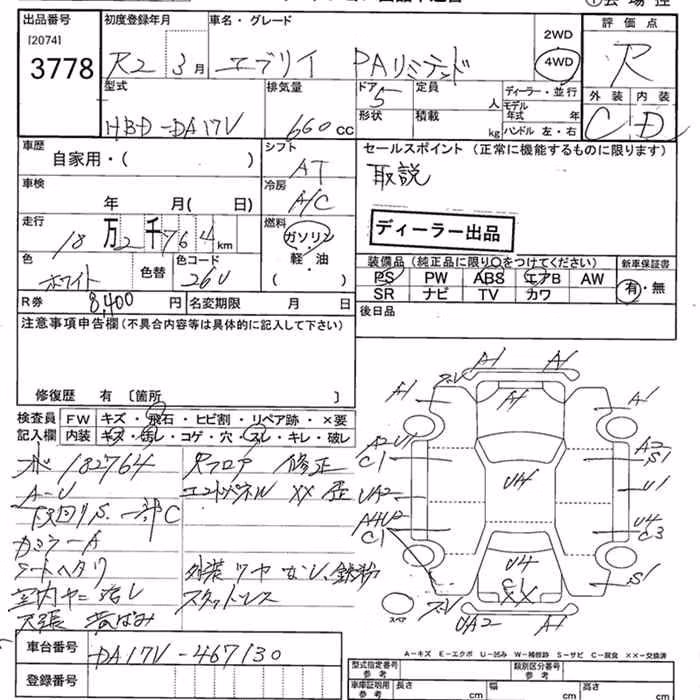 出品番号 初度登録年月 車名・グレード 2WD 評価点
[2074]
3778 R2 3月 エブリイ PAリミテッド 4WD R
型式 排気量 ドア 定員 ディーラー・並行 外装 内装
HBD-DA17V 660CC 5 人 モデル年式 年 C D
形状 積載 kg ハンドル 左・右
車歴 シフト セールスポイント(正常に機能するものに限ります)
自家用・( ) AT 取説
車検 冷房
年 月( 日) A/C
走行 燃料 ディーラー出品
18万2千764km ガソリン
色 色替 色コード 軽・油 装備品(純正品に限り○をつけてください) 新車保証書
ホワイト 26U ( ) PS PW ABS エアB AW 有・無
R券 8,400円 名変期限 月 日 SR ナビ TV カワ
注意事項申告欄(不具合内容等は具体的に記入して下さい) 後日品
修復歴 有 〔箇所 〕
検査員 FW キズ・飛石・ヒビ割・リペア跡・×要
記入欄 内装 キズ・汚レ・コゲ・穴・スレ・キレ・破レ
メ 182764 Rフロア 修正
A-U エンドパネル XX 歪
下回りS 一部C
カミラーA
シートヘタリ 外装ツヤなし、鉄粉
室内ヤニ汚レ スタットレス
天張 黄ばみ
A1 A1
A1 A1 A1
A2 U1 A2
C1 S1
UA2 U4 U1
A4U2 U4
C1 C3
U4
XX S1
スペア UA2 A1
A-キズ E-エクボ U-凹み W-補修跡 S-サビ C-腐食 XX-交換済
車台番号 DA17V-467130
登録番号
型式指定番号 参考 類別区分番号 参考
車庫証明用 参考 長さ cm 幅 cm 高さ cm